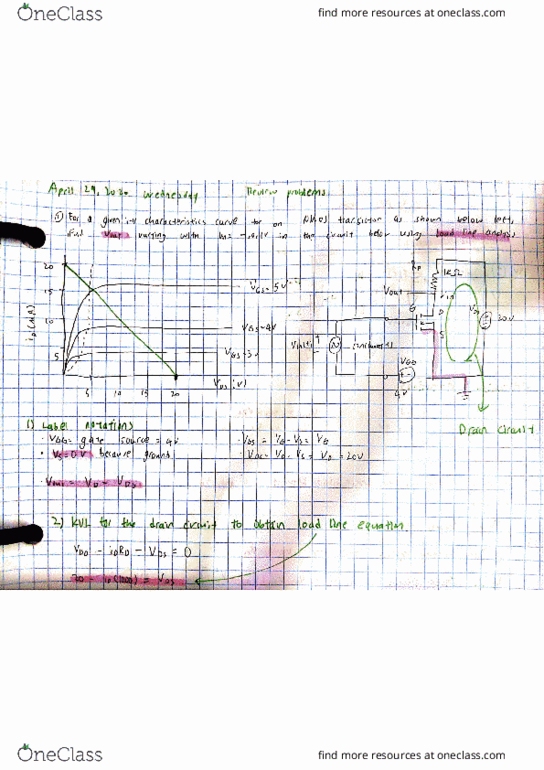 OneClass
find more resources at oneclass.com
April 29, Wednesday Review problems
① For a given characteristics curve for an NMOS transistor as shown below left,
find Vout varying with in the circuit below using load line analysis
20
15
10
5
iD (mA)
VGS = 5V
VGS = 4V
VGS = 3V
5 10 15 20
VDS (V)
RD
1kΩ
Vout
G
D
S
20V
VGG
4V
Drain Circuit
1) Label notations
· VGG = gate source = 4V
· VS = 0V because ground
Vout = VD = VDS
· VGS = VG - VS = VG
2) KVL for the drain circuit to obtain load line equation.
VDD - iDRD - VDS = 0
20 - iD(1000) = VDS
OneClass
find more resources at oneclass.com